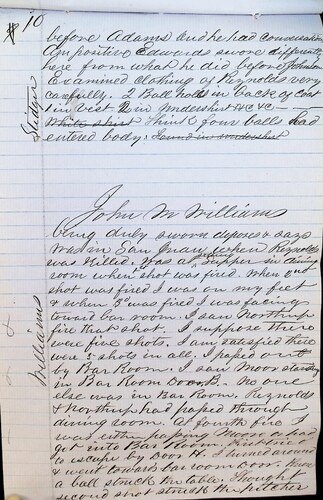 10
before Adams and he had conversation
Am positive Edwards swore differently
here from what he did before Johnson
Examined clothing of Reynolds very
carefully. 2 Ball holes in back of Coat
1 in vest 2 in undershirt &c &c
White shirt Think four balls had
entered body. Found in undershirt
Slidger
John M Williams
being duly sworn deposes says
Was in San Juan when Reynolds
was Killed. Was at supper in dining
room when 1st shot was fired. When 2nd
shot was fired I was on my feet
& when 3d was fired I was facing
toward bar room. I saw Northup
fire that shot. I suppose there
were five shots. I am satisfied there
were 5 shots in all. I passed out
by Bar Room. I saw Moor standing
in Bar Room door B. No one
else was in Bar Room. Reynolds
& Northup had passed through
dining room. At fourth fire I
was passing Moor
got into Bar Room.
to escape by door H. I turned around
& went towards bar room door.
a ball struck the table. Thought
second shot struck the pitcher
Williams